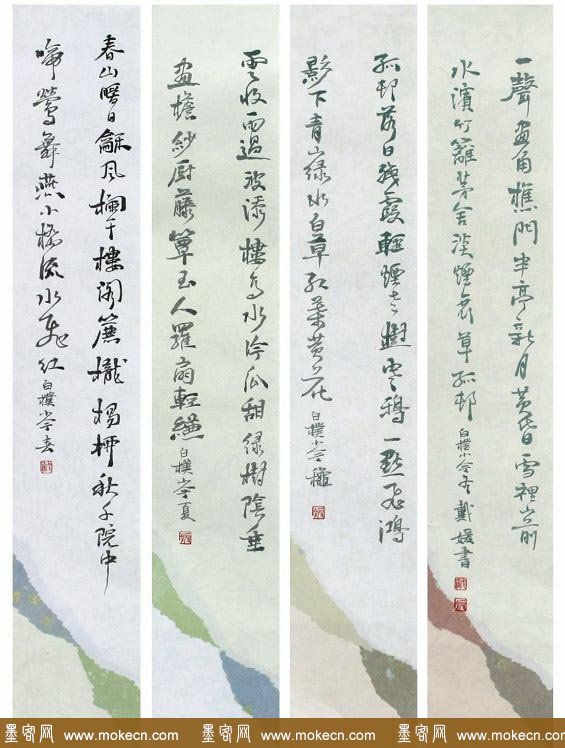 春山暖日龢风欄干樓阁簾櫳楊柳秋千院中
啼鶯舞燕小橋流水飞红 白樸小令春
雲收雨過波添樓高水冷瓜甜绿樹陰垂
畫檐紗厨藤簟玉人羅扇輕縑 白樸小令夏
孤邨落日残霞輕煙老樹寒鴉一點飞鴻
影下青山绿水白草红葉黄花 白樸小令穐
一聲畫角樵門半亭新月黄昏雪裡山前
水濱竹籬茅舍淡煙衰草孤邨 白樸小令冬 戴媛書
墨客网 www.mokecn.com 墨客网 www.mokecn.com 墨客网 www.mokecn.com